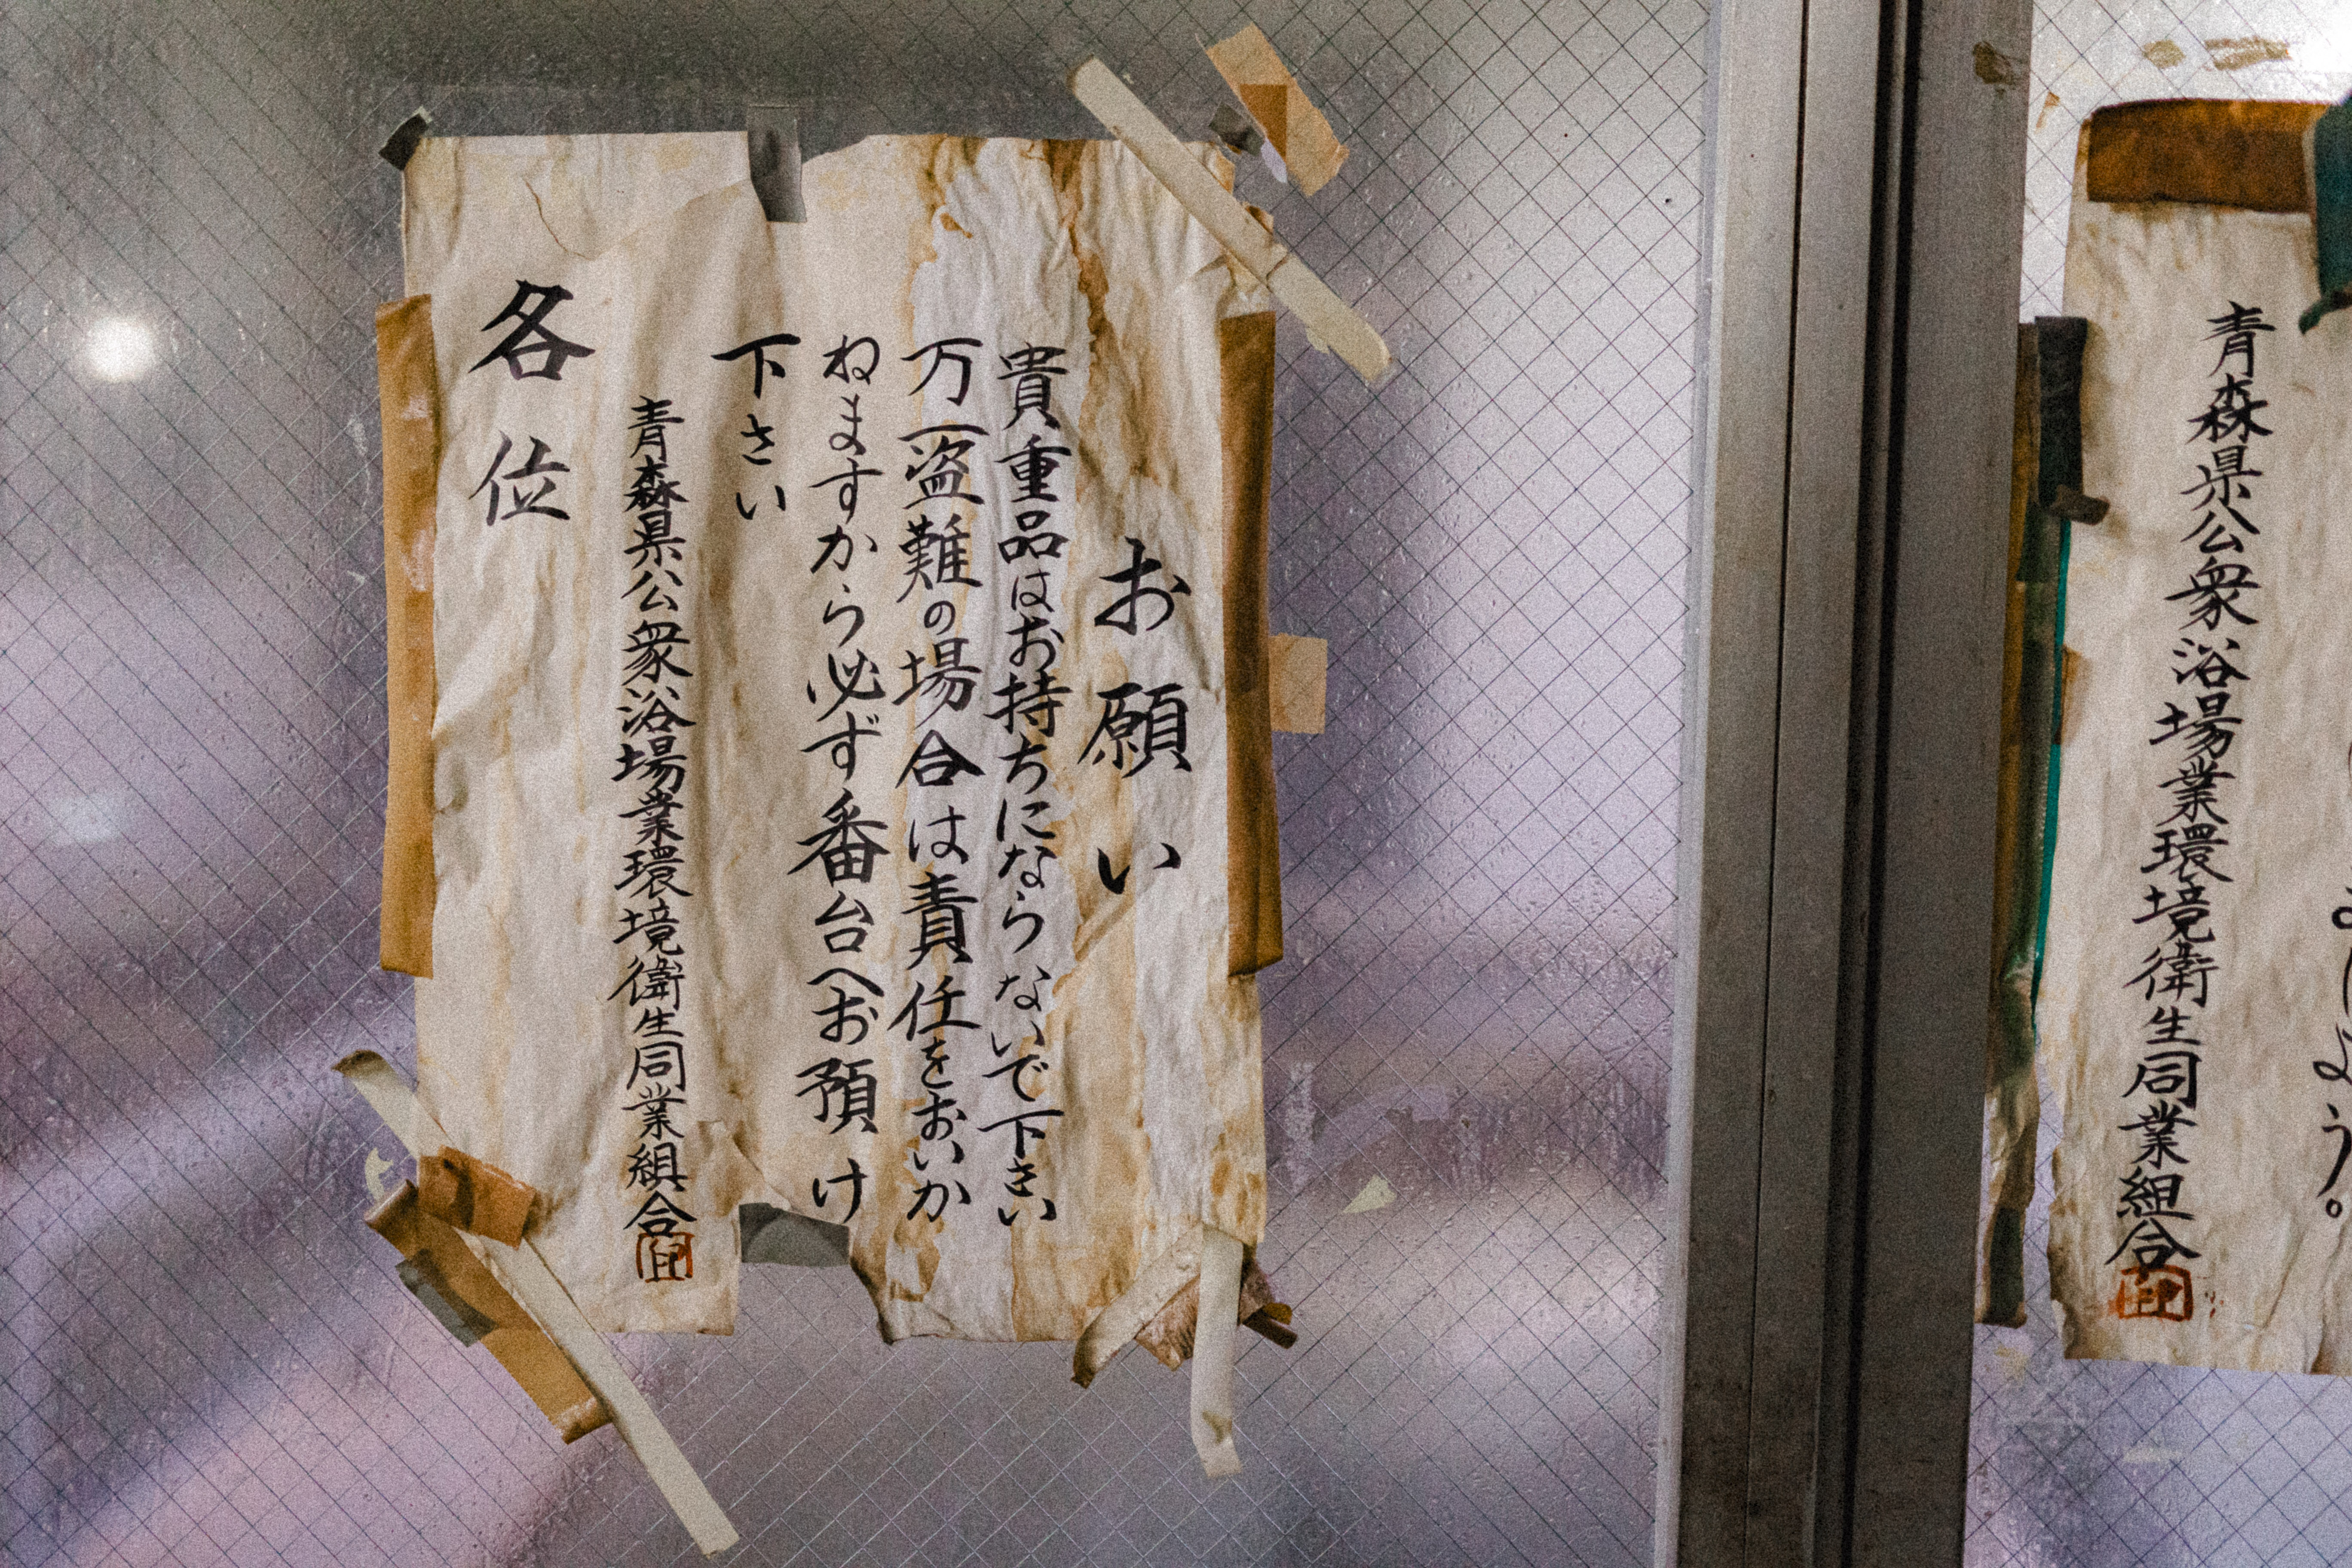 お願い
貴重品はお持ちにならないで下さい
万一盗難の場合は責任をおいか
ねますから必ず番台へお預け
下さい
青森県公衆浴場業環境衛生同業組合
印
各位
青森県公衆浴場業環境衛生同業組合
印